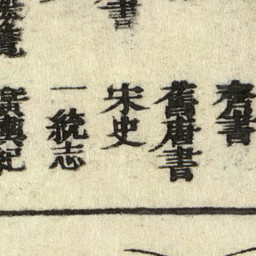 齊書
書
舊唐書
宋史
一統志
覽